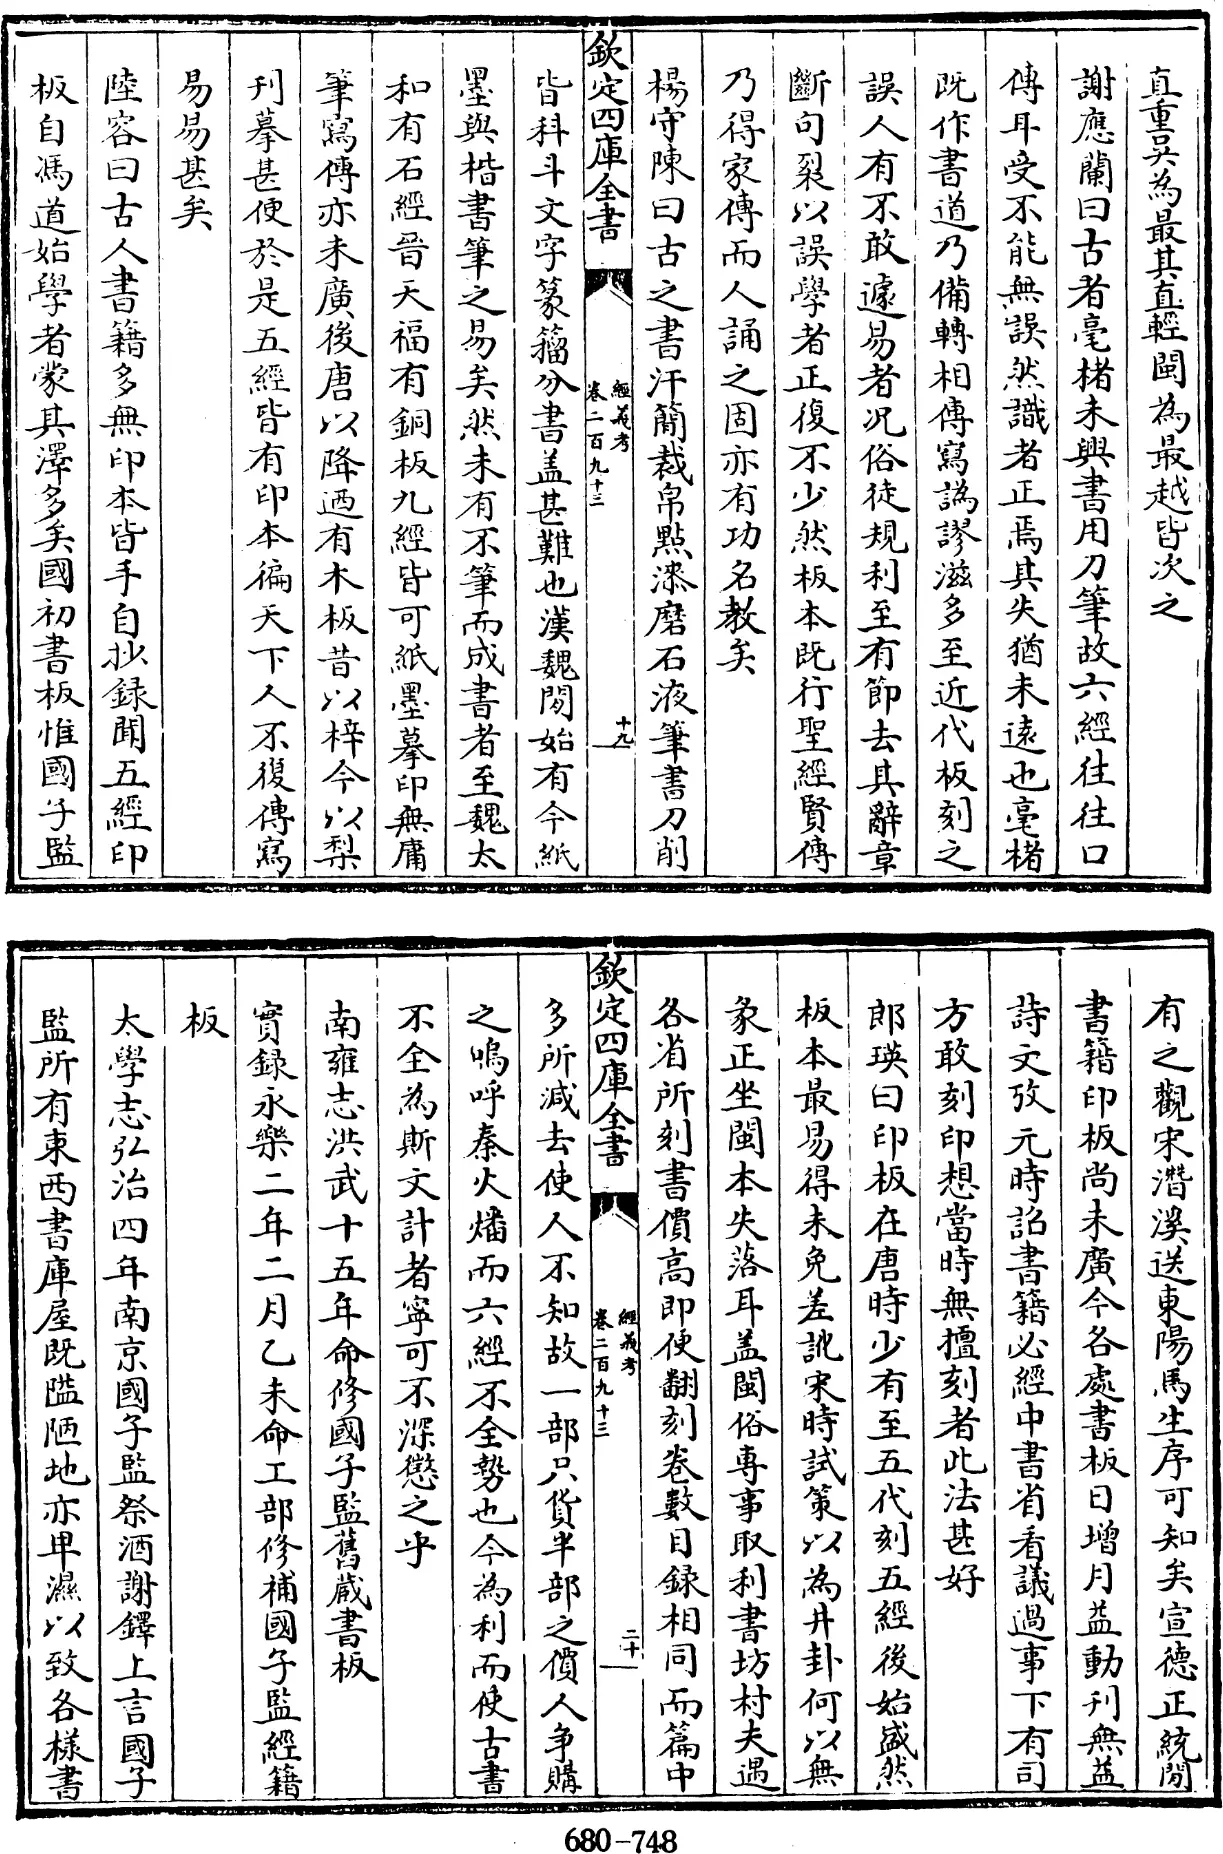 直重吳為最其直輕閩為最越皆次之
謝應蘭曰古者毫楮未興書用刀筆故六經往往口
傳耳受不能無誤然識者正焉其失猶未遠也毫楮
既作書道乃備轉相傳寫譌謬滋多至近代板刻之
誤人有不敢遽易者况俗徒規利至有節去其辭章
斷句裂以誤學者正復不少然板本既行聖經賢傳
乃得家傳而人誦之固亦有功名教矣
楊守陳曰古之書汗簡裁帛點漆磨石液筆書刀削
欽定四庫全書
經義考
卷二百九十三
十九
皆科斗文字篆籀分書盖甚難也漢魏間始有今紙
墨與楷書筆之易矣然未有不筆而成書者至魏太
和有石經晉天福有銅板九經皆可紙墨摹印無庸
筆寫傳亦未廣後唐以降迺有木板昔以梓今以梨
刊摹甚便於是五經皆有印本徧天下人不復傳寫
易易甚矣
陸容曰古人書籍多無印本皆手自抄録聞五經印
板自馮道始學者蒙其澤多矣國初書板惟國子監
有之觀宋潛溪送東陽馬生序可知矣宣德正統間
書籍印板尚未廣今各處書板日增月益動刊無益
詩文攷元時詔書籍必經中書省看議過事下有司
方敢刻印想當時無擅刻者此法甚好
郎瑛曰印板在唐時少有至五代刻五經後始盛然
板本最易得未免差訛宋時試策以為井卦何以無
彖正坐閩本失落耳盖閩俗專事取利書坊村夫遇
各省所刻書價高即便翻刻卷數目録相同而篇中
欽定四庫全書
經義考
卷二百九十三
二十
多所減去使人不知故一部只貨半部之價人争購
之嗚呼秦火燔而六經不全勢也今為利而使古書
不全為斯文計者寧可不深懲之乎
南雍志洪武十五年命修國子監舊蔵書板
實録永樂二年二月乙未命工部修補國子監經籍
板
太學志弘治四年南京國子監祭酒謝鐸上言國子
監所有東西書庫屋既隘陋地亦卑濕以致各様書
680-748